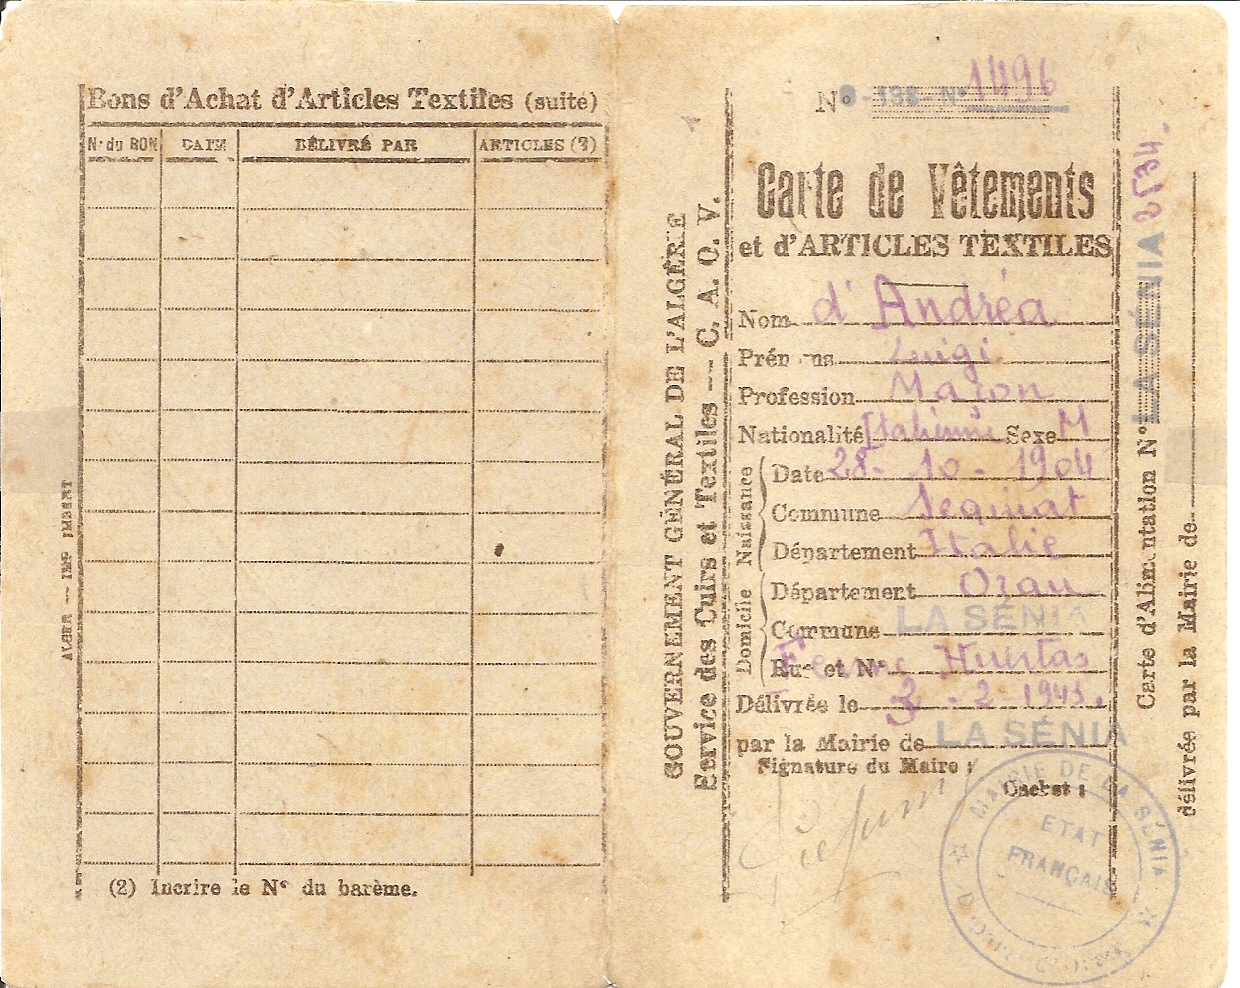 Bons d'Achat d'Articles Textiles (suite)
N° du BON DATE DÉLIVRÉ PAR ARTICLES (2)
(2) Incrire le N° du barème.
ALGER — IMP. IMBERT
GOUVERNEMENT GÉNÉRAL DE L'ALGÉRIE
Service des Cuirs et Textiles — C. A. O. V.
N° 1496
Carte de Vêtements
et d'ARTICLES TEXTILES
Nom d'Andréa
Prénoms Luigi
Profession Maçon
Nationalité Italienne Sexe M
Naissance
Date 28-10-1904
Commune
Département Italie
Domicile
Département Oran
Commune LA SÉNIA
Rue et N° Ferme Huertas
Délivrée le 3-2-1943.
par la Mairie de LA SÉNIA
Signature du Maire :
Cachet :
MAIRIE DE LA SÉNIA
ETAT
FRANÇAIS
Carte d'Alimentation N° LA SÉNIA 2534.
délivrée par la Mairie de